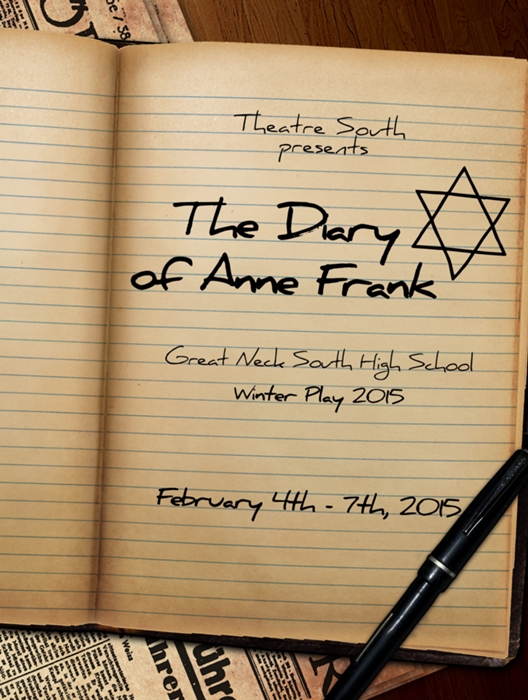 Theatre South
presents
The Diary
of Anne Frank
Great Neck South High School
Winter Play 2015
February 4th - 7th, 2015